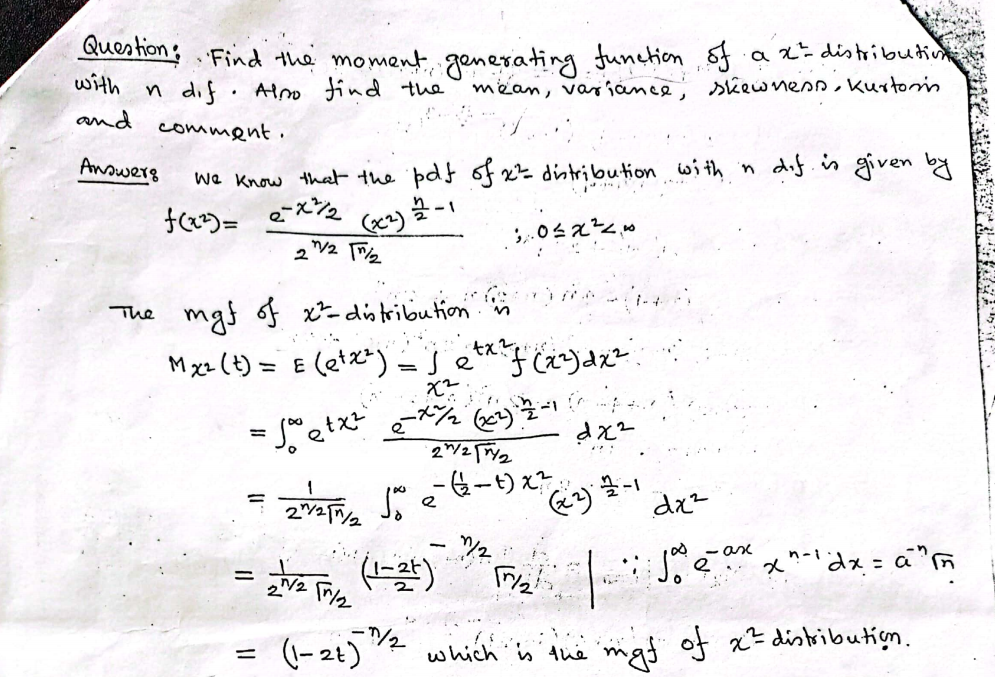 Question: Find the moment generating function of a χ²- distribution
with n d.f. Also find the mean, variance, skewness, kurtosis
and comment.
Answer: We know that the pdf of χ²- distribution with n d.f is given by
f(χ²) = e^(-χ²/2) (χ²)^(n/2 - 1) / (2^(n/2) Γn/2) ; 0 ≤ χ² < ∞
The mgf of χ²- distribution is
M χ²(t) = E (e^(tχ²)) = ∫_χ² e^(tχ²) f(χ²) dχ²
= ∫₀^∞ e^(tχ²) e^(-χ²/2) (χ²)^(n/2 - 1) / (2^(n/2) Γn/2) dχ²
= 1/(2^(n/2) Γn/2) ∫₀^∞ e^(-(1/2 - t) χ²) (χ²)^(n/2 - 1) dχ²
= 1/(2^(n/2) Γn/2) ((1-2t)/2)^(-n/2) Γn/2 | ∵ ∫₀^∞ e^(-ax) x^(n-1) dx = a^(-n) Γn
= (1-2t)^(-n/2) which is the mgf of χ²- distribution.